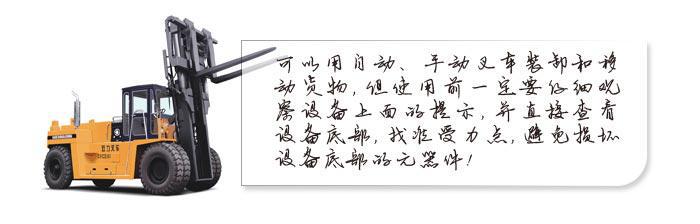 可以用自动、手动叉车装卸和移
动货物,但使用前一定要仔细观
察设备上面的提示,并直接查看
设备底部,找准受力点,避免损坏
设备底部的元器件!